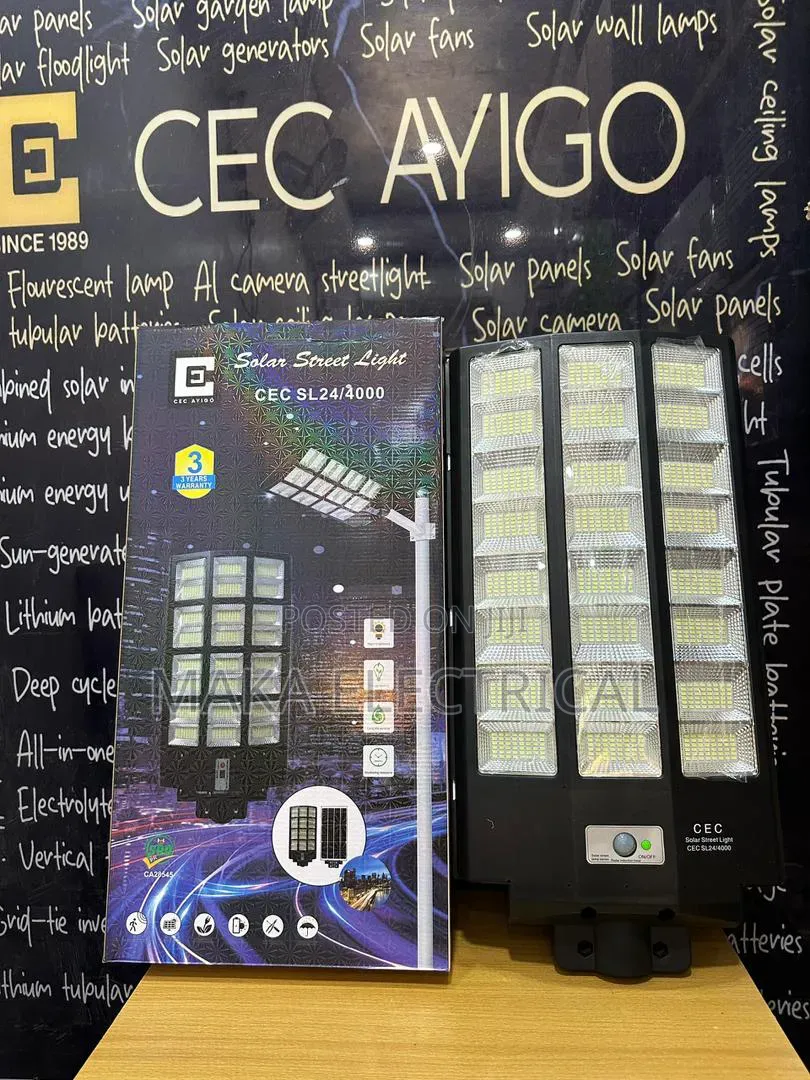 ar panels Solar garden lamp
lar floodlight Solar generators Solar fans Solar wall lamps
CEC AYIGO
SINCE 1989
Solar ceiling lamps
Flourescent lamp AI camera streetlight Solar panels Solar fans
tubular batteries Solar ceiling Solar camera Solar panels
cells
bined solar in
ht
ium energy
ium energy
Sun-generate
Lithium bat
Deep cycle
All-in-one
Electrolyte
Vertical
Grid-tie inve
thium tubular
Tubular plate batteries
atteries
Solar Street Light
CEC AYIGO
CEC SL24/4000
3
3 YEARS
WARRANTY
CA28545
POSTED ON JIJI
MAKA ELECTRICAL
CEC
Solar Street Light
CEC SL24/4000
ON/OFF